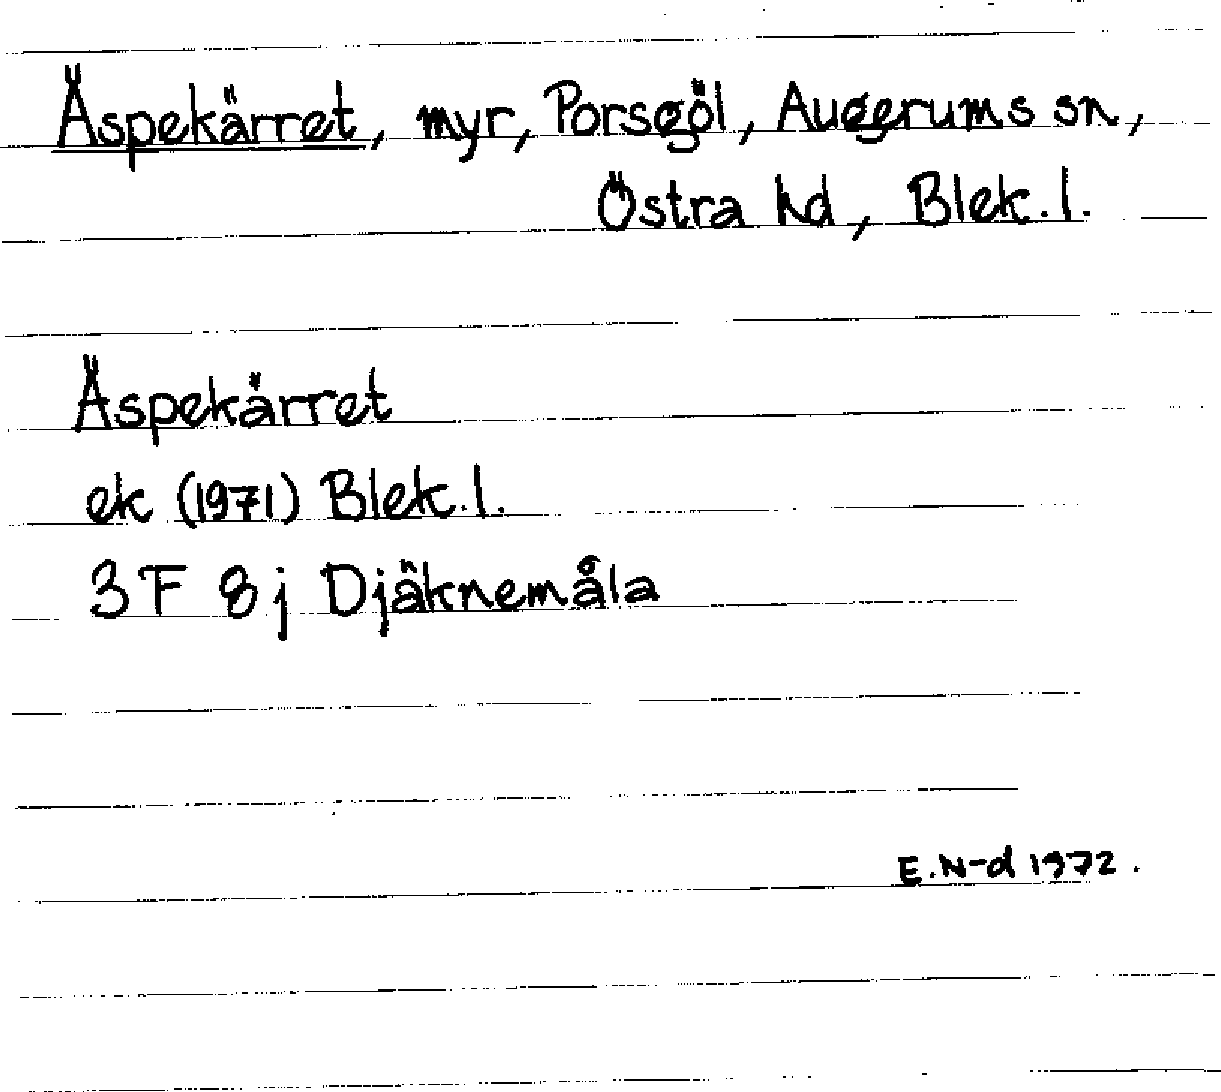 Äspekärret, myr, Porsgöl, Augerums sn,
Östra hd, Blek.l.
Äspekärret
ek (1971) Blek.l.
3F 8j Djäknemåla
E.N-d 1972.